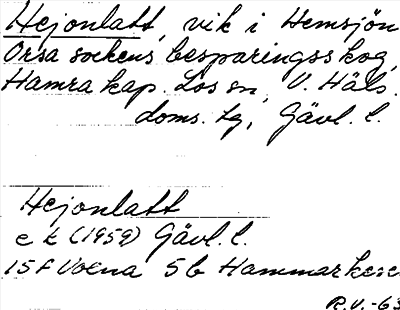 Hejonlatt, vik i Hemsjön
Orsa sockens besparingsskog,
Hamra kap. Los sn, V. Häls.
doms. lg, Gävl. l.
Hejonlatt
e k (1959) Gävl. l.
15 F Voxna 5b Hammarkere
R.V.-63